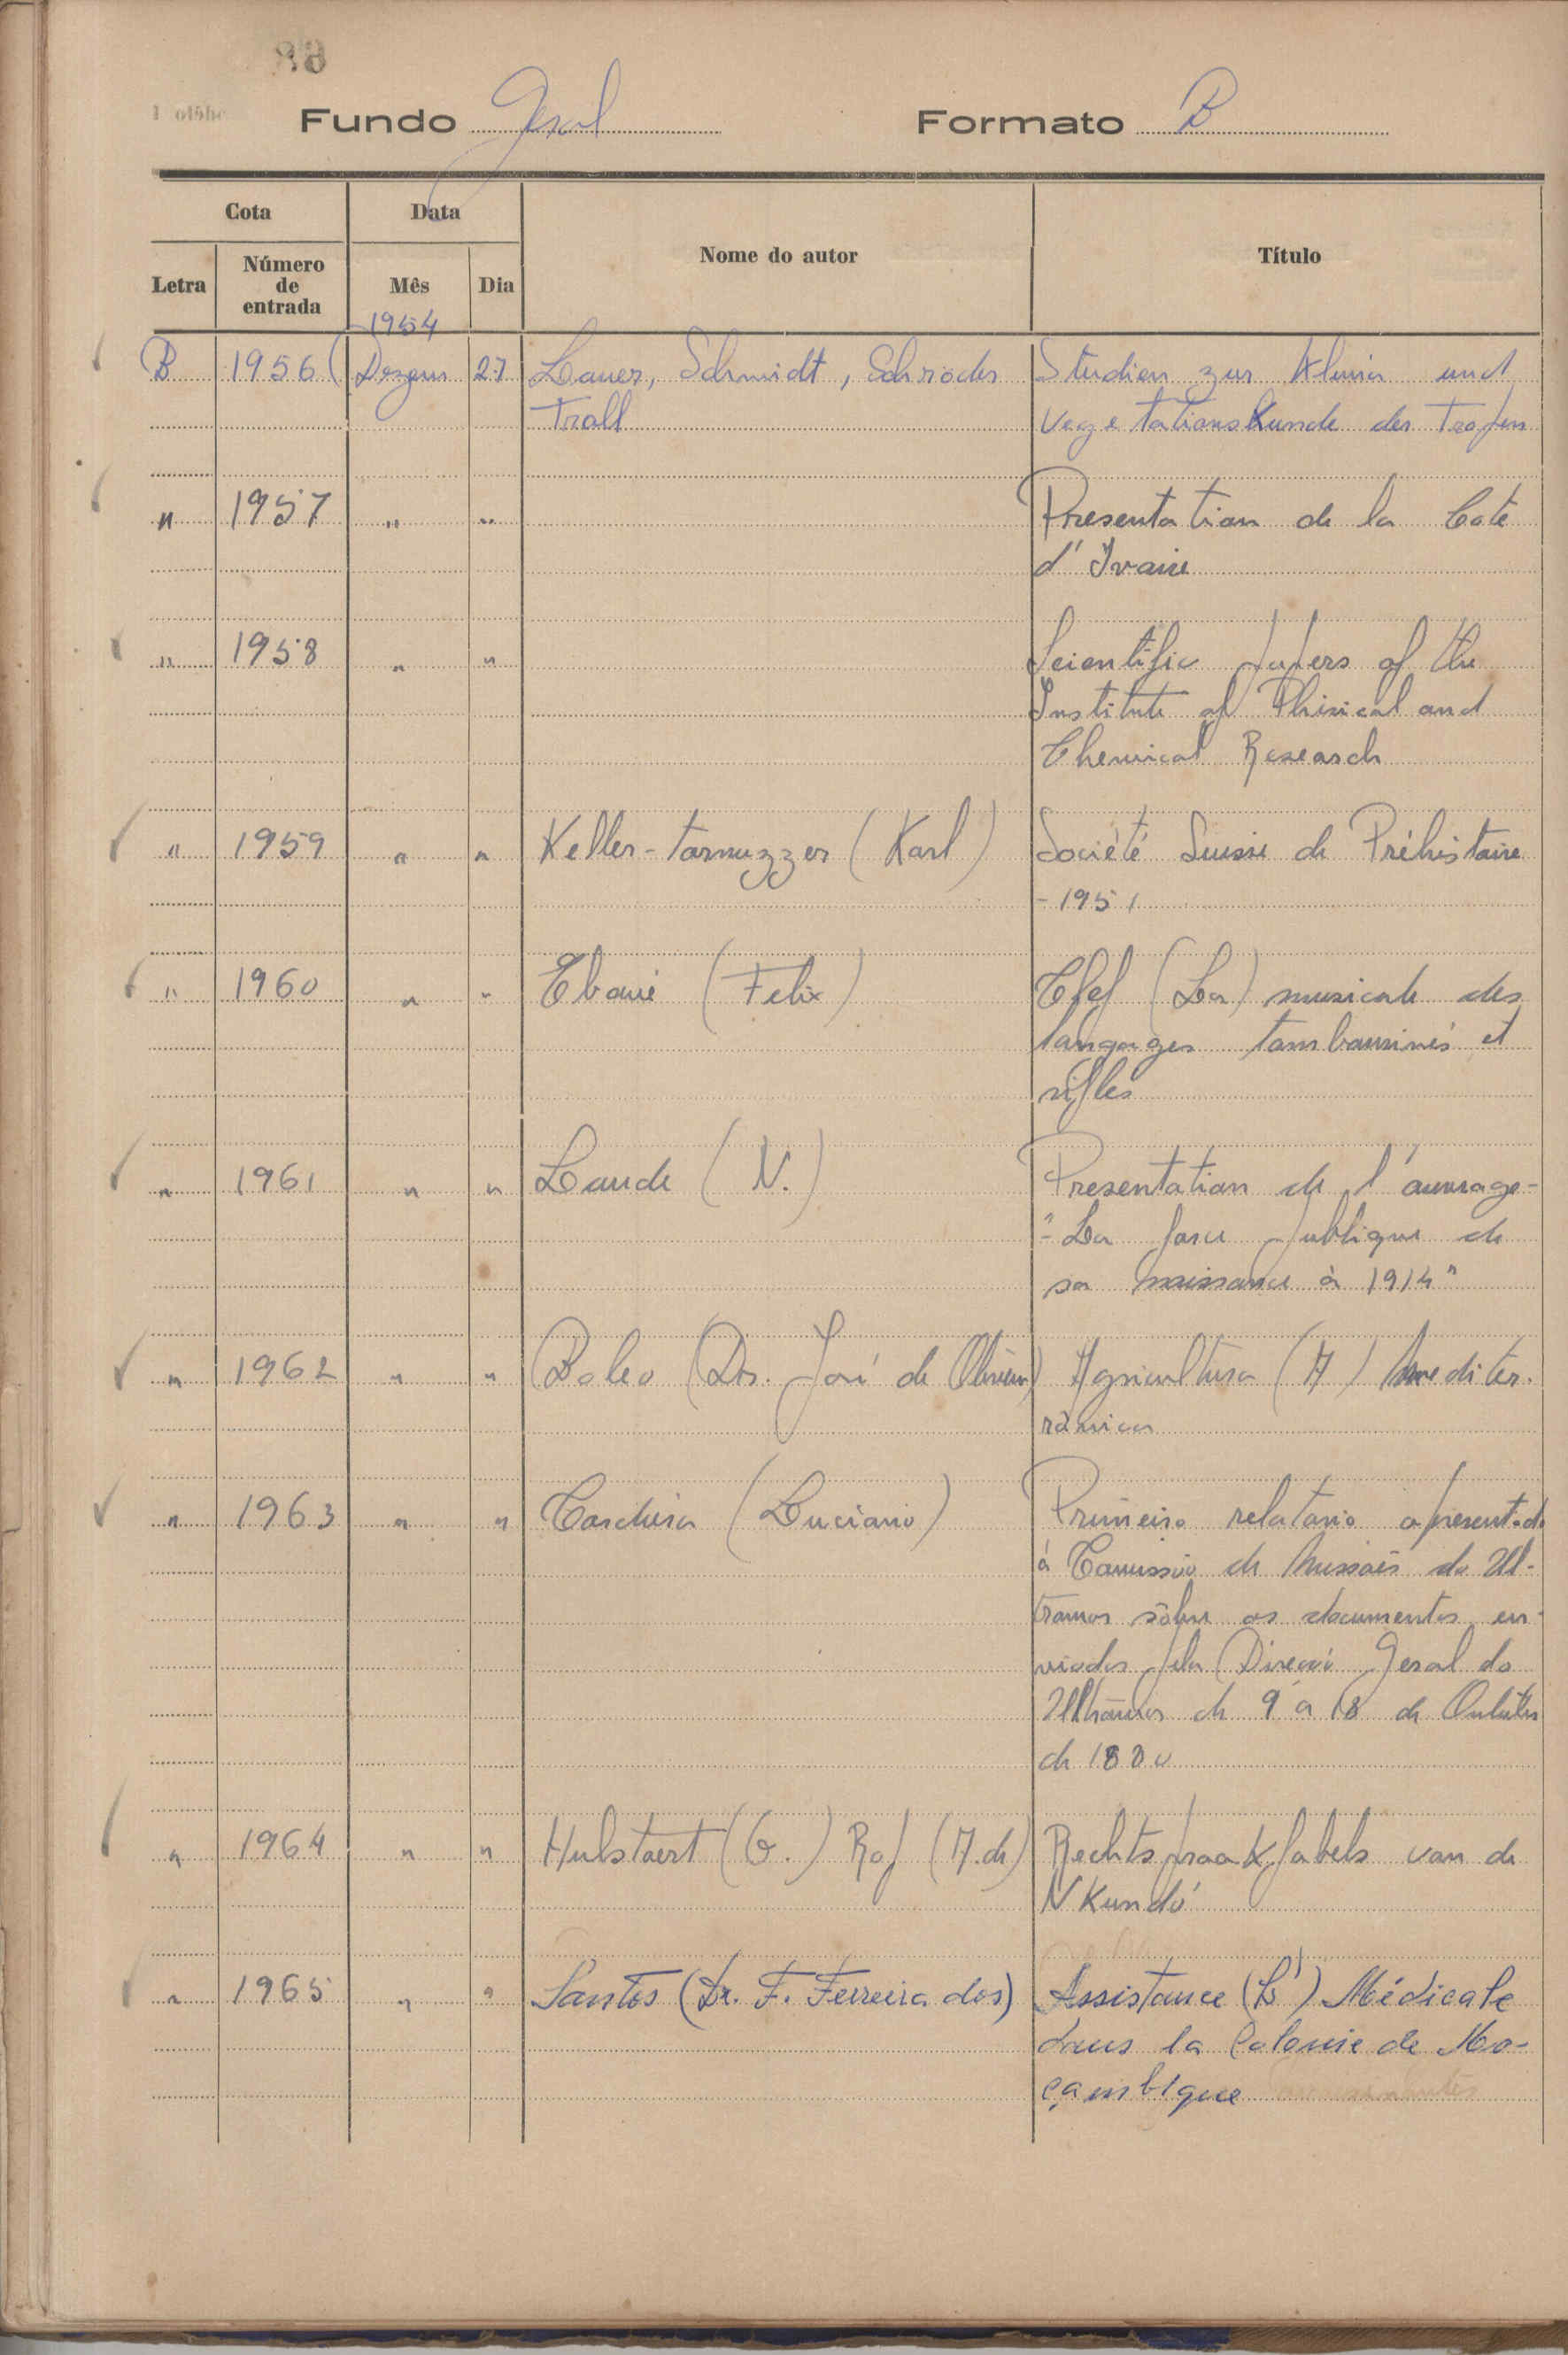 Fundo Geral Formato B
Cota Data Nome do autor Título
Letra Número de entrada Mês Dia
1954
B 1956 Dezem 27 Lauer, Schmidt, Schröder Studien zur Klima und
Troll Vegetationskunde der Tropen
" 1957 " " Presentation de la Cote
d'Ivoire
" 1958 " " Scientific papers of the
Institute of Phisical and
Chemical Research
" 1959 " " Keller-Tarnuzzer (Karl) Société Suisse de Préhistoire
- 1951
" 1960 " " Eboué (Felix) Clef (La) musicale des
langages tambourinés et
sifflés
" 1961 " " Laude (N.) Presentation de l'ouvrage-
"La force publique de
sa naissance à 1914"
" 1962 " " Boleo (Dr. José de Oliveira) Agricultura (A) mediter.
rânica
" 1963 " " Cordeiro (Luciano) Primeiro relatorio apresentado
á Comissão de Missões do Ul-
tramar sôbre os documentos en-
viados pela Direcção Geral do
Ultramar de 9 a 18 de Outubro
de 1880
" 1964 " " Hulstaert (G.) Rop (A. de) Rechtspraakfabels van de
NKundó
" 1965 " " Santos (Dr. F. Ferreira dos) Assistance (L') Médicale
dans la Colonie de Mo-
çambique